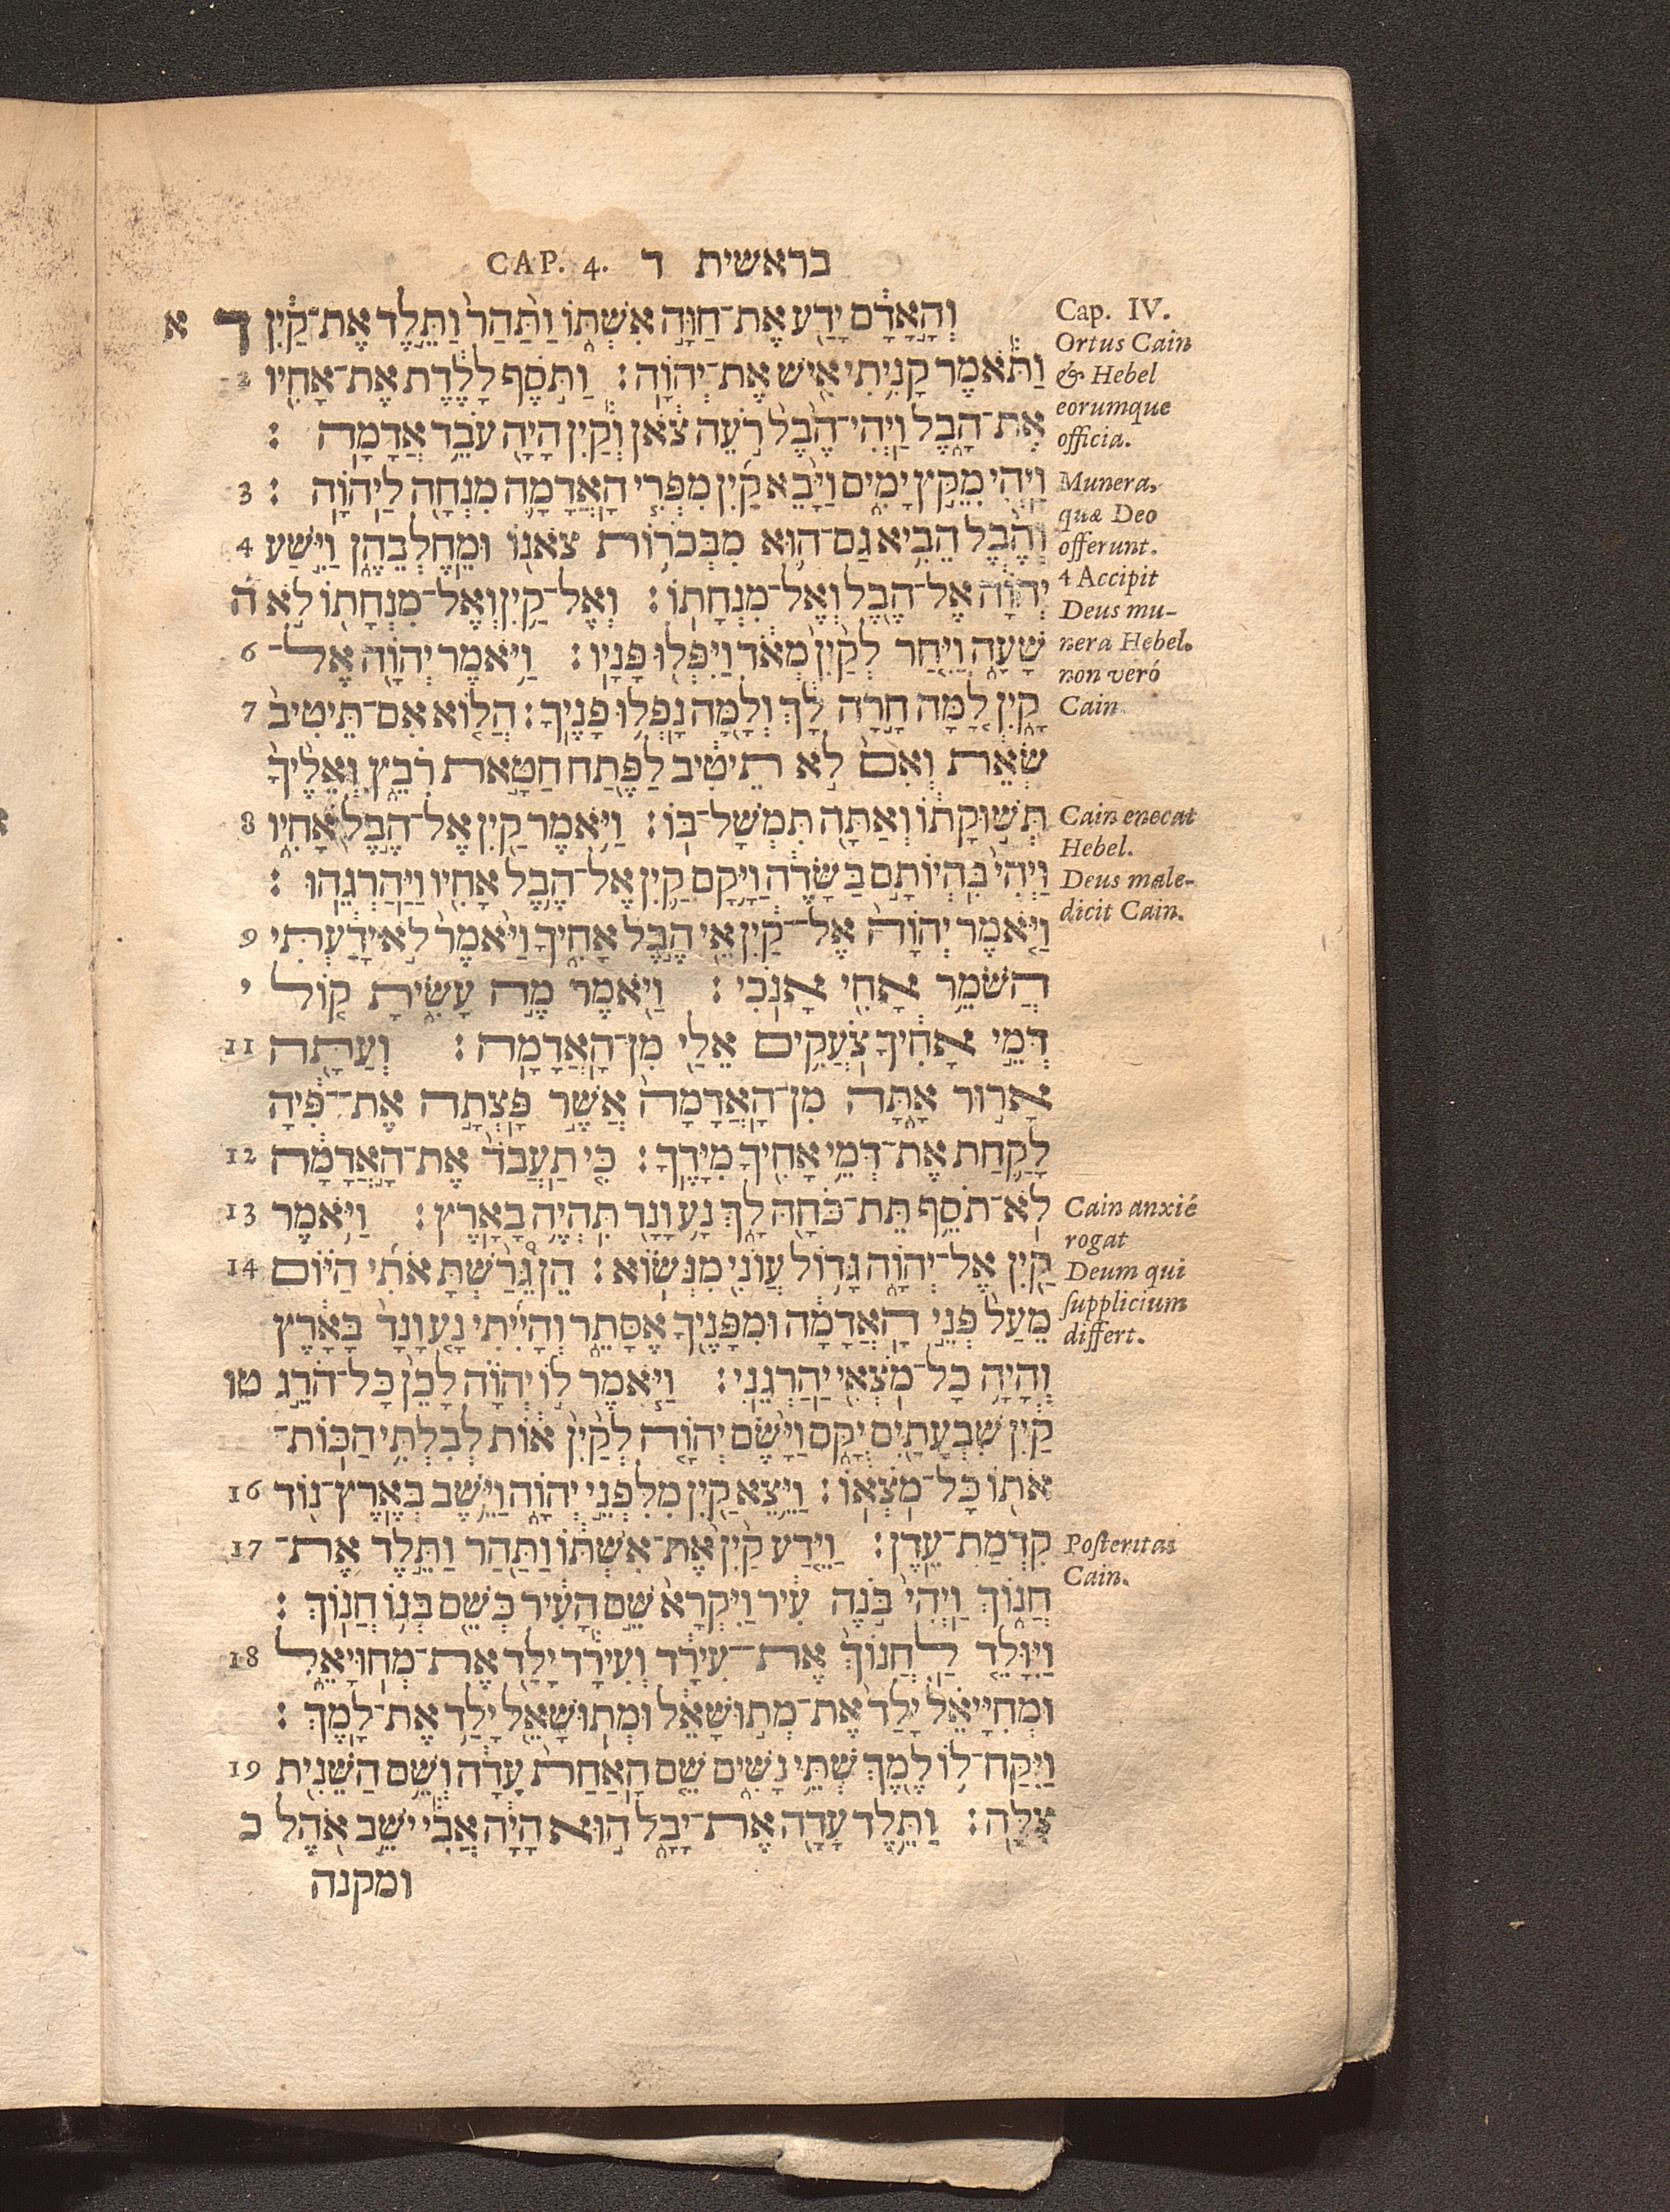 בראשית ד CAP. 4.
וְהָאָדָם יָדַע אֶת־חַוָּה אִשְׁתּוֹ וַתַּהַר וַתֵּלֶד אֶת־קַיִן ד א
וַתֹּאמֶר קָנִיתִי אִישׁ אֶת־יְהוָֹה׃ וַתֹּסֶף לָלֶדֶת אֶת־אָחִיו 2
אֶת־הָבֶל וַיְהִי־הֶבֶל רֹעֵה צֹאן וְקַיִן הָיָה עֹבֵד אֲדָמָה׃
וַיְהִי מִקֵּץ יָמִים וַיָּבֵא קַיִן מִפְּרִי הָאֲדָמָה מִנְחָה לַיהוָֹה׃ 3
וְהֶבֶל הֵבִיא גַם־הוּא מִבְּכֹרוֹת צֹאנוֹ וּמֵחֶלְבֵהֶן וַיִּשַׁע 4
יְהוָֹה אֶל־הֶבֶל וְאֶל־מִנְחָתוֹ׃ וְאֶל־קַיִן וְאֶל־מִנְחָתוֹ לֹא ה
שָׁעָה וַיִּחַר לְקַיִן מְאֹד וַיִּפְּלוּ פָּנָיו׃ וַיֹּאמֶר יְהוָֹה אֶל־ 6
קָיִן לָמָּה חָרָה לָךְ וְלָמָּה נָפְלוּ פָנֶיךָ׃ הֲלוֹא אִם־תֵּיטִיב 7
שְׂאֵת וְאִם לֹא תֵיטִיב לַפֶּתַח חַטָּאת רֹבֵץ וְאֵלֶיךָ
תְּשׁוּקָתוֹ וְאַתָּה תִּמְשָׁל־בּוֹ׃ וַיֹּאמֶר קַיִן אֶל־הֶבֶל אָחִיו 8
וַיְהִי בִּהְיוֹתָם בַּשָּׂדֶה וַיָּקָם קַיִן אֶל־הֶבֶל אָחִיו וַיַּהַרְגֵהוּ׃
וַיֹּאמֶר יְהוָֹה אֶל־קַיִן אֵי הֶבֶל אָחִיךָ וַיֹּאמֶר לֹא יָדַעְתִּי 9
הֲשֹׁמֵר אָחִי אָנֹכִי׃ וַיֹּאמֶר מֶה עָשִׂיתָ קוֹל י
דְּמֵי אָחִיךָ צֹעֲקִים אֵלַי מִן־הָאֲדָמָה׃ וְעַתָּה 11
אָרוּר אָתָּה מִן־הָאֲדָמָה אֲשֶׁר פָּצְתָה אֶת־פִּיהָ
לָקַחַת אֶת־דְּמֵי אָחִיךָ מִיָּדֶךָ׃ כִּי תַעֲבֹד אֶת־הָאֲדָמָה 12
לֹא־תֹסֵף תֵּת־כֹּחָהּ לָךְ נָע וָנָד תִּהְיֶה בָאָרֶץ׃ וַיֹּאמֶר 13
קַיִן אֶל־יְהוָֹה גָּדוֹל עֲוֹנִי מִנְּשׂוֹא׃ הֵן גֵּרַשְׁתָּ אֹתִי הַיּוֹם 14
מֵעַל פְּנֵי הָאֲדָמָה וּמִפָּנֶיךָ אֶסָּתֵר וְהָיִיתִי נָע וָנָד בָּאָרֶץ
וְהָיָה כָל־מֹצְאִי יַהַרְגֵנִי׃ וַיֹּאמֶר לוֹ יְהוָֹה לָכֵן כָּל־הֹרֵג טו
קַיִן שִׁבְעָתַיִם יֻקָּם וַיָּשֶׂם יְהוָֹה לְקַיִן אוֹת לְבִלְתִּי הַכּוֹת־
אֹתוֹ כָּל־מֹצְאוֹ׃ וַיֵּצֵא קַיִן מִלִּפְנֵי יְהוָֹה וַיֵּשֶׁב בְּאֶרֶץ־נוֹד 16
קִדְמַת־עֵדֶן׃ וַיֵּדַע קַיִן אֶת־אִשְׁתּוֹ וַתַּהַר וַתֵּלֶד אֶת־ 17
חֲנוֹךְ וַיְהִי בֹּנֶה עִיר וַיִּקְרָא שֵׁם הָעִיר כְּשֵׁם בְּנוֹ חֲנוֹךְ׃
וַיִּוָּלֵד לַחֲנוֹךְ אֶת־עִירָד וְעִירָד יָלַד אֶת־מְחוּיָאֵל 18
וּמְחִיָּיאֵל יָלַד אֶת־מְתוּשָׁאֵל וּמְתוּשָׁאֵל יָלַד אֶת־לָמֶךְ׃
וַיִּקַּח־לוֹ לֶמֶךְ שְׁתֵּי נָשִׁים שֵׁם הָאַחַת עָדָה וְשֵׁם הַשֵּׁנִית 19
צִלָּה׃ וַתֵּלֶד עָדָה אֶת־יָבָל הוּא הָיָה אֲבִי ישֵׁב אֹהֶל כ
ומקנה
Cap. IV.
Ortus Cain
& Hebel
eorumque
officia.
Munera,
quæ Deo
offerunt.
4 Accipit
Deus mu-
nera Hebel.
non veró
Cain
Cain enecat
Hebel.
Deus male-
dicit Cain.
Cain anxié
rogat
Deum qui
ſupplicium
differt.
Poſteritas
Cain.